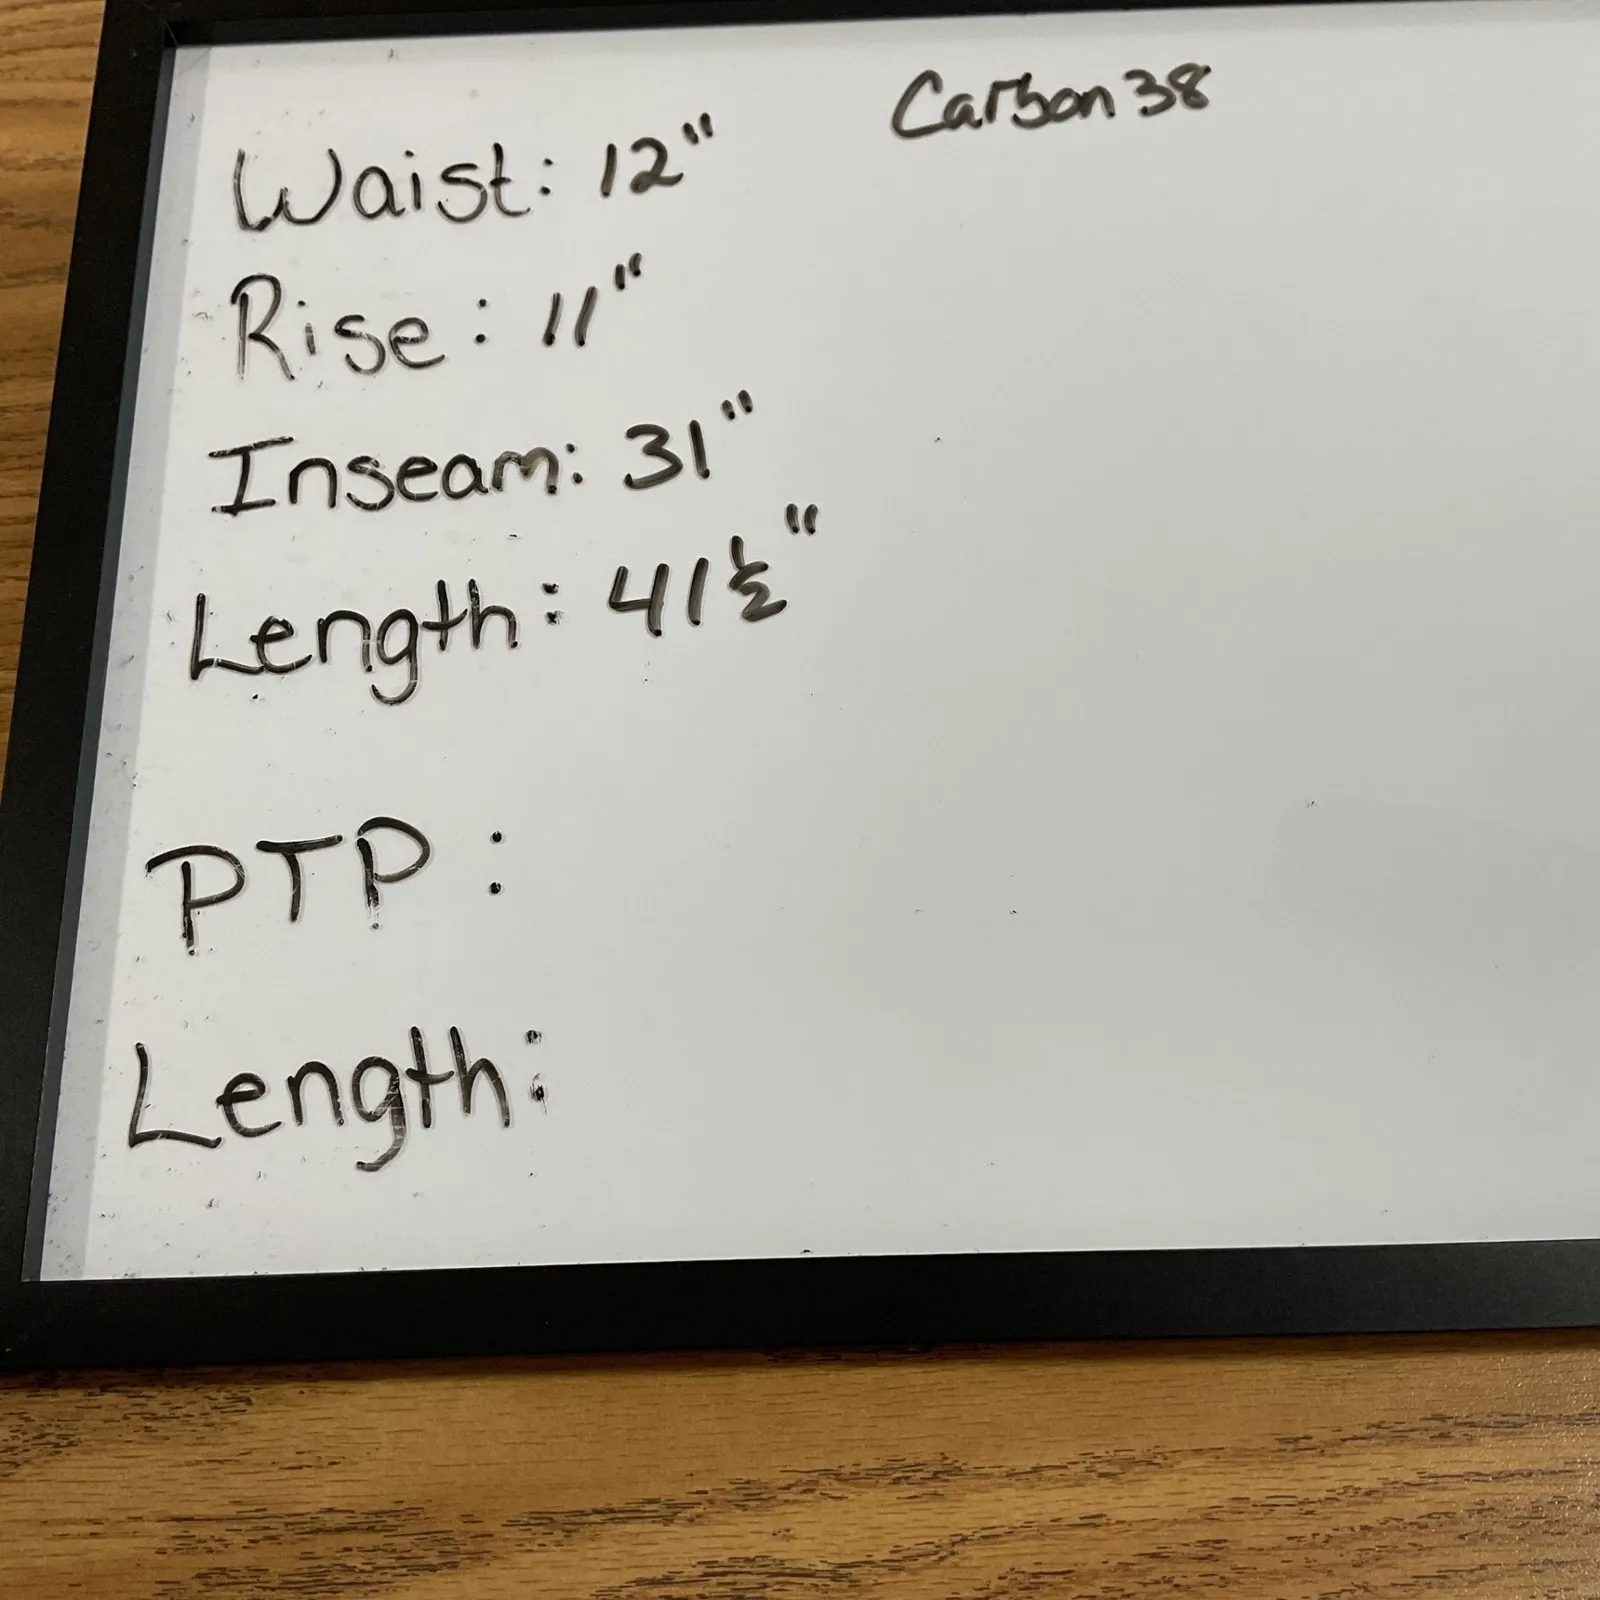 Carbon38
Waist: 12"
Rise: 11"
Inseam: 31"
Length: 41½"
PTP:
Length: